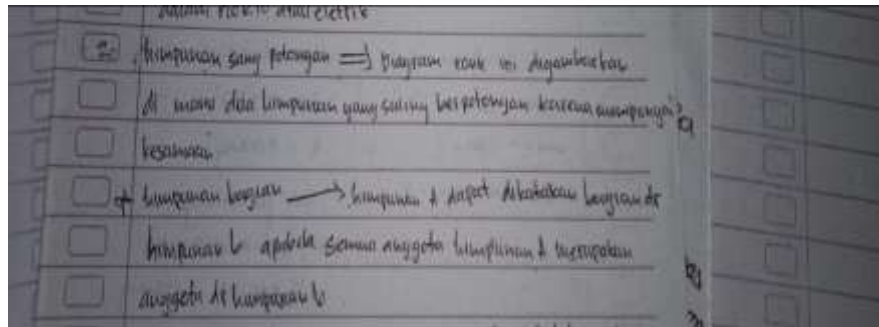 dalam
2. himpunan saling potongan => Diagram venn ini digambarkan
di mana dua himpunan yang saling berpotongan karena mempunyai
kesamaan
+ himpunan bagian → himpunan A dapat dikatakan bagian dr
himpunan b apabila semua anggota himpunan A merupakan
anggota dr himpunan b